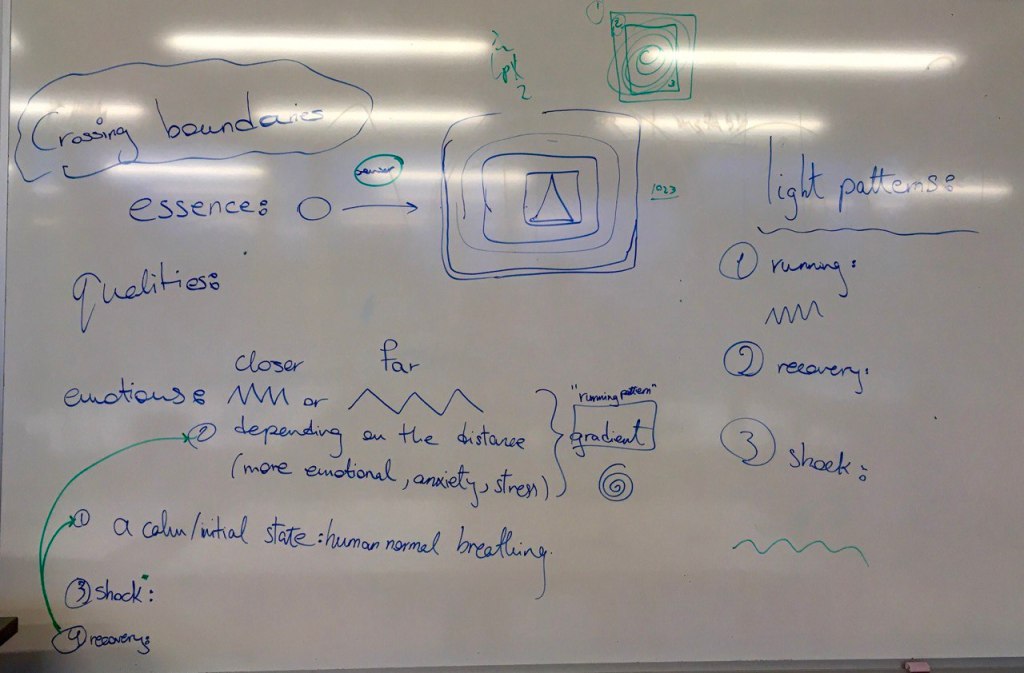 Crossing boundaries
sensor
essence:
1023
qualities:
closer far
emotions: or
② depending on the distance
(more emotional, anxiety, stress)
"running pattern"
gradient
① a calm/initial state: human normal breathing.
③ shock:
④ recovery:
1
2
3
light patterns:
① running:
② recovery:
③ shock: